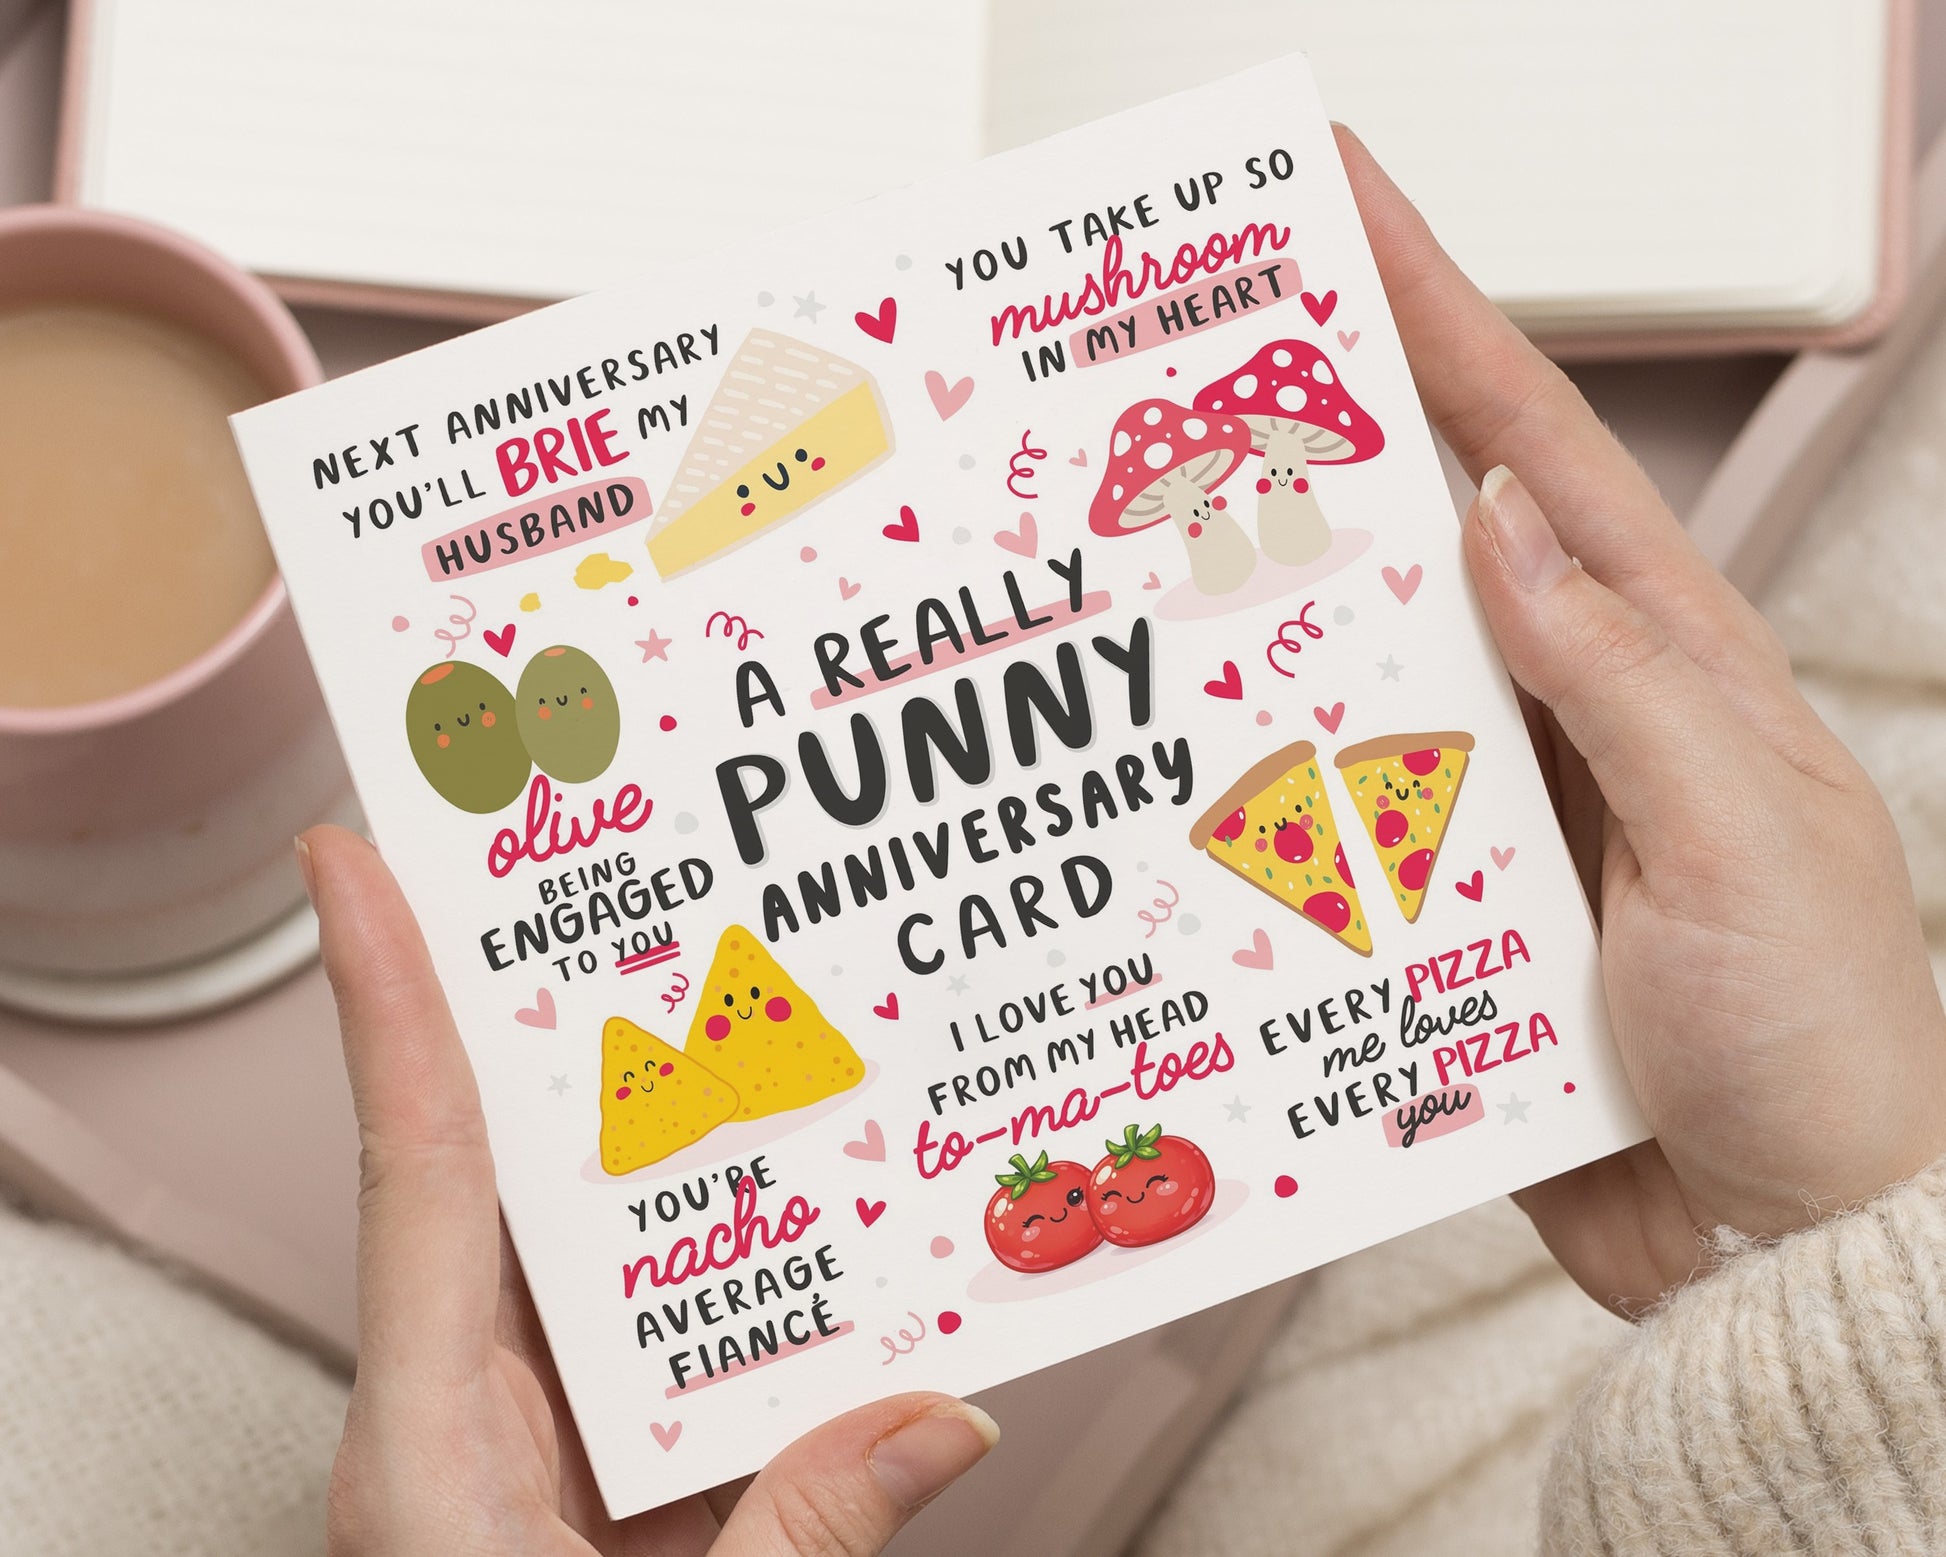 NEXT ANNIVERSARY
YOU'LL BRIE MY
HUSBAND
YOU TAKE UP SO
mushroom
IN MY HEART
A REALLY
PUNNY
ANNIVERSARY
CARD
olive
BEING
ENGAGED
TO YOU
YOU'RE
nacho
AVERAGE
FIANCÉ
I LOVE YOU
FROM MY HEAD
to-ma-toes
EVERY PIZZA
me loves
EVERY PIZZA
you